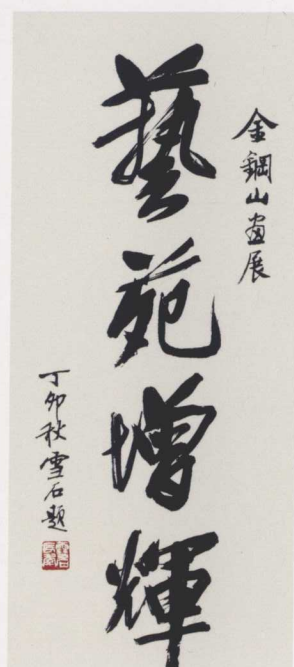 金鋼山畫展
藝苑增輝
丁卯秋雪石題